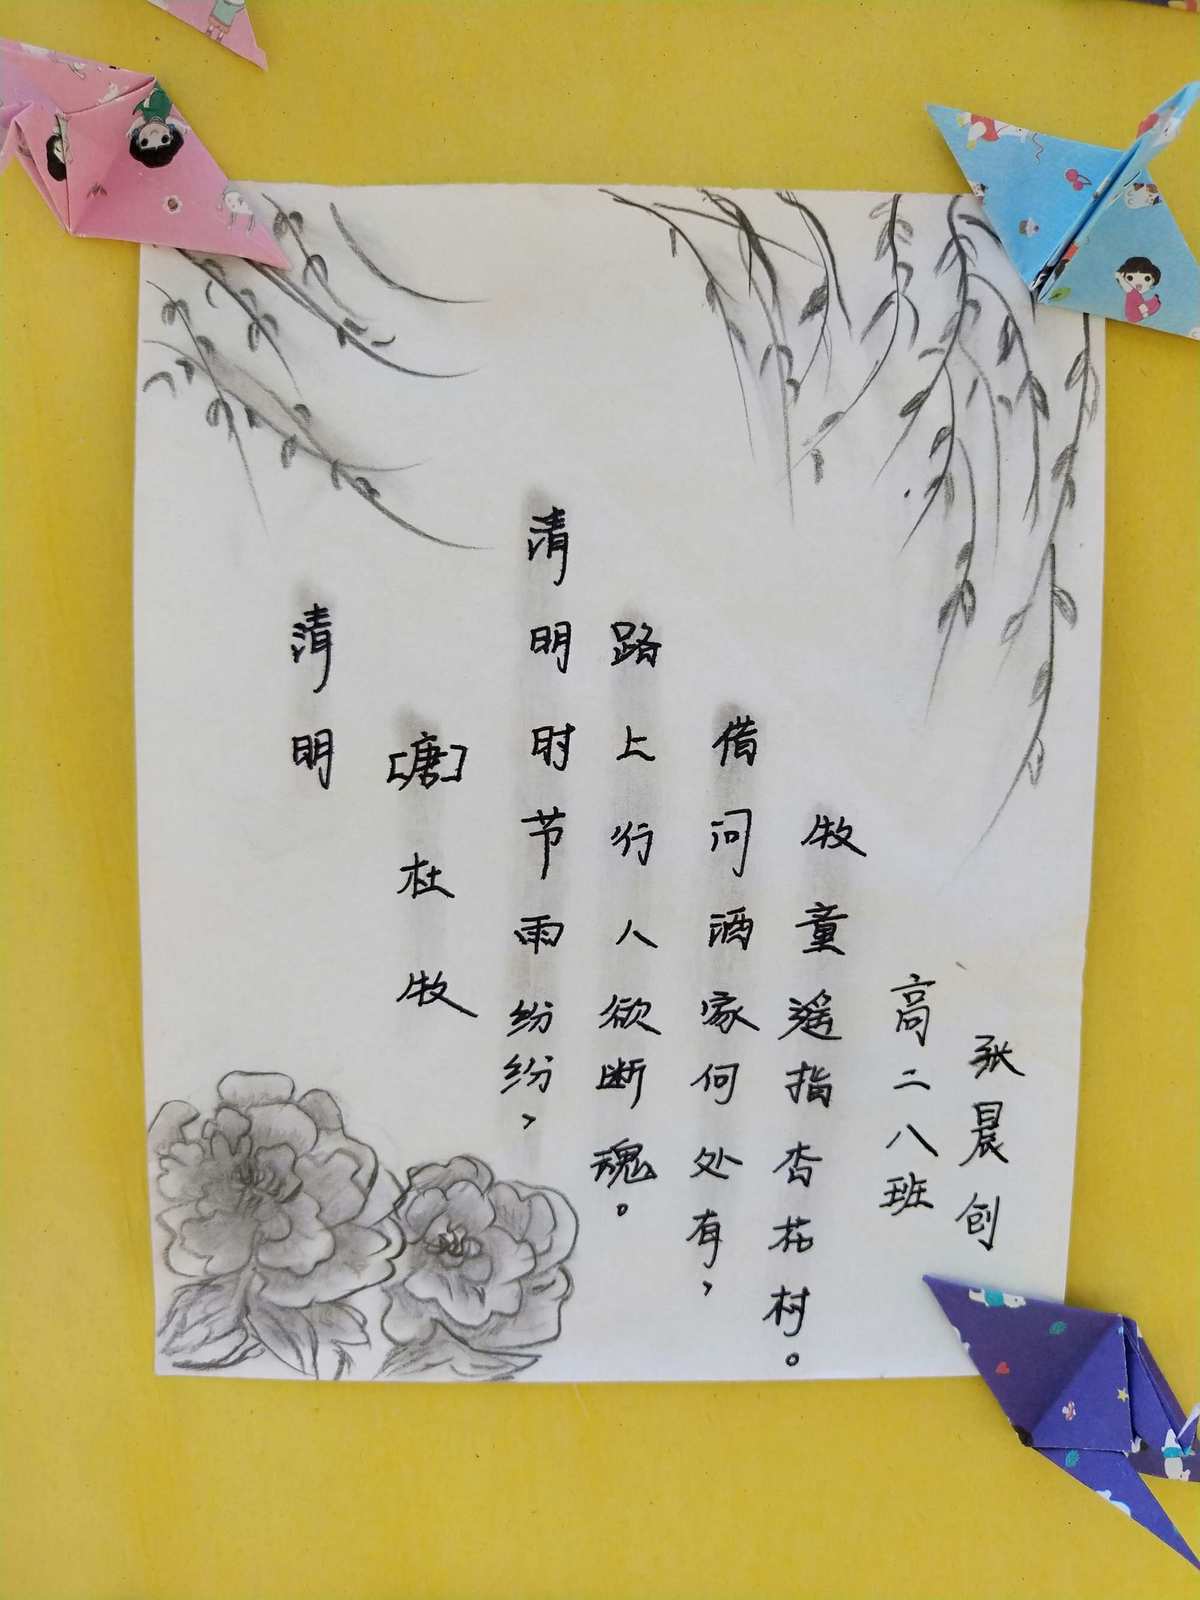 清明
[唐]杜牧
清明时节雨纷纷，
路上行人欲断魂。
借问酒家何处有，
牧童遥指杏花村。
高二八班
张晨创